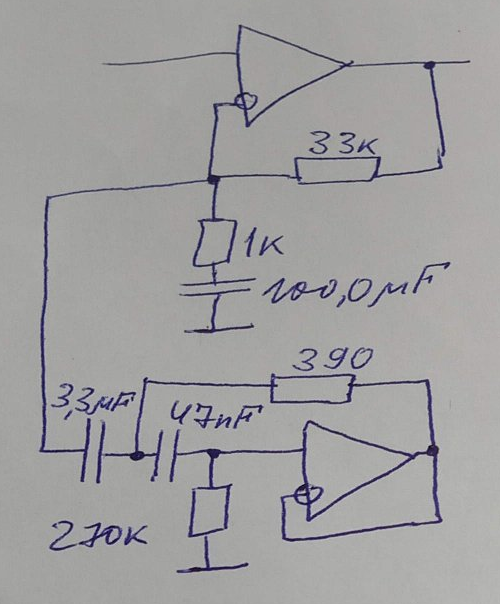 33к
1к
100,0мF
390
3,3мF
47nF
270к